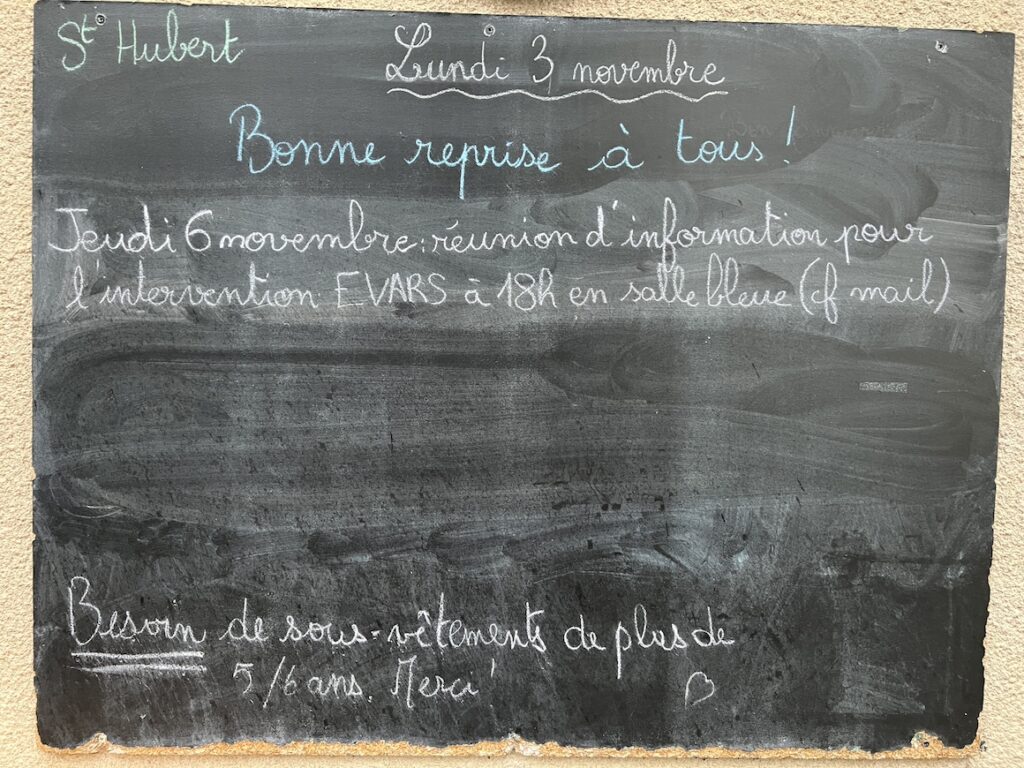 St Hubert
Lundi 3 novembre
Bonne reprise à tous !
Jeudi 6 novembre : réunion d'information pour
l'intervention EVARS à 18h en salle bleue (cf mail)
Besoin de sous-vêtements de plus de
5/6 ans. Merci